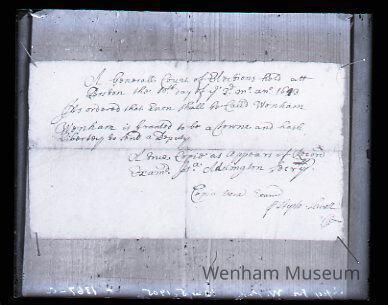 A Generall Court of Elections held att
Boston the 10th day of ye 3d mo. ano 1643
Its ordered that Enon shall be Called Wenham
Wenham is Granted to be a Towne and hath
liberty to send a Deputy.
A true Copie as Appears of Record
Examd. Isa Addington Secry
Copia vera Examd
Wenham Museum